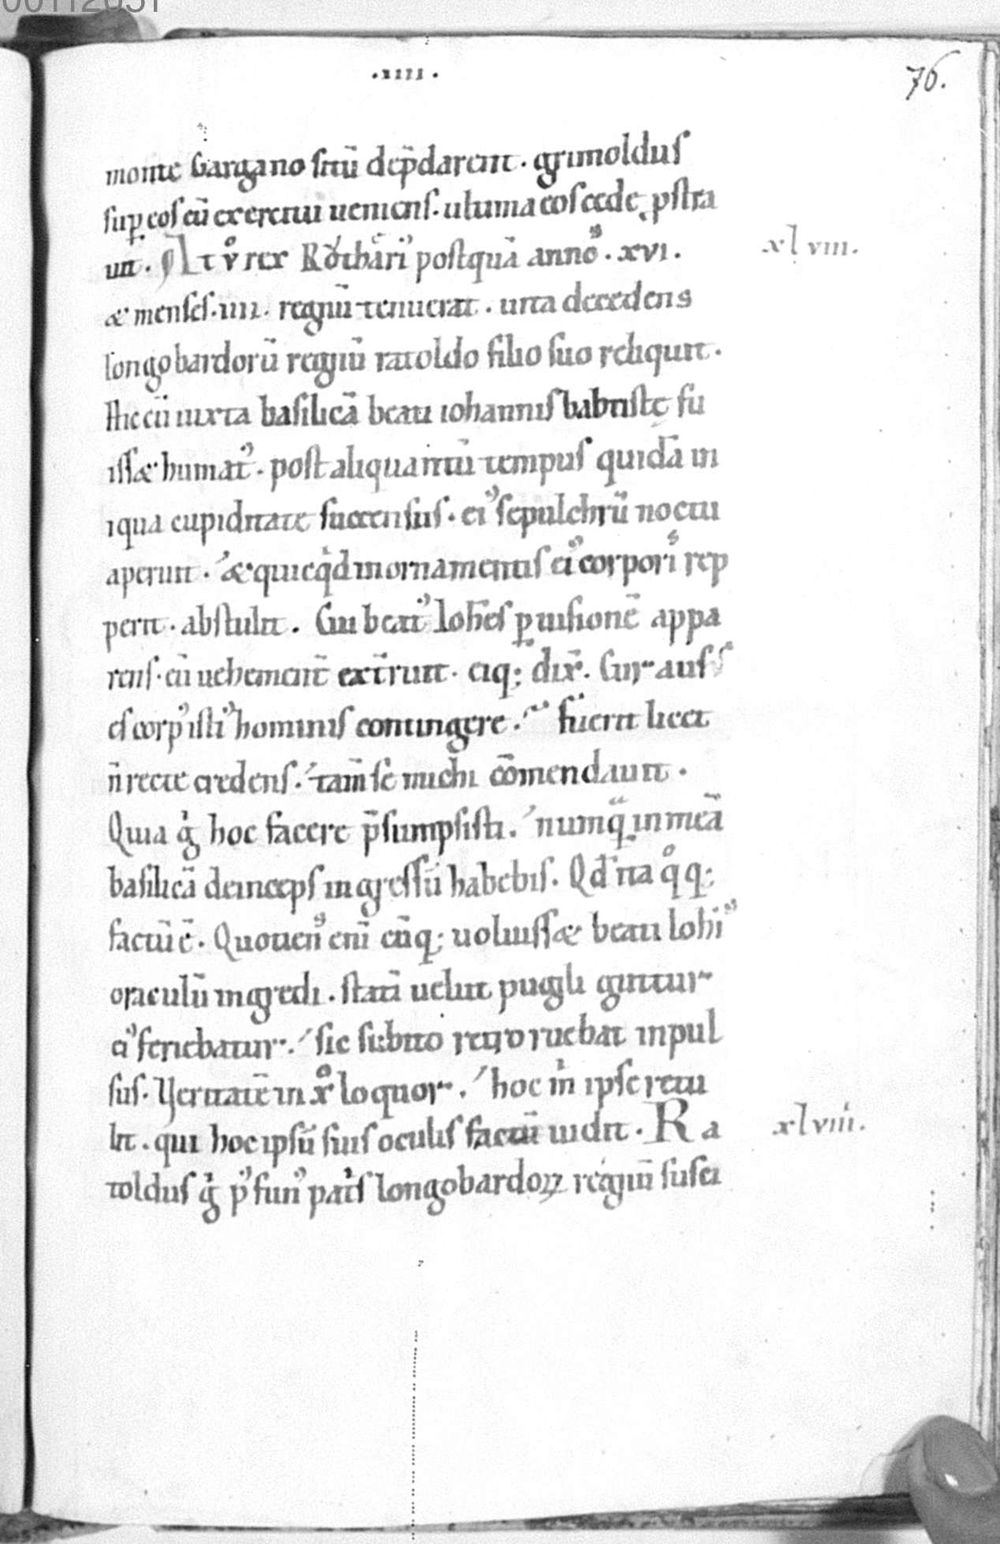 00112031
.IIII.
76.
monte Gargano sitū dep̄darent. grimoldus
sup̱ eos cū exercitu ueniens. ultima eos cęde ꝓstra
uit. At v̊ rex Rotharı᷒ postquā anno᷒. xvi.
xlviii.
& menses. iiii. regnū tenuerat. uita decedens
longobardorū regnū ratoldo filio suo reliquit.
Hic cū iuxta basilicā beati iohannis babtistę fu
iss& humat᷒. post aliquantū tempus quidā in
iqua cupiditate succensus. ei᷒ sepulchrū noctu
aperuit. & quicqͥd in ornamentis ei᷒ corporis rep
perit. abstulit. Cui beat᷒ Ioh̄es p̱ uisionē appa
rens. eū uehement̄ ext̄ruit. eiq; dix̄. Cur aus᷒
es corp᷒ isti᷒ hominis contingere. fuerit licet
n̄ recte credens. tam̄ se michi cōmendauit.
Quia gͥ hoc facere p̄sumpsisti. numqᷓ in meā
basilicā deinceps ingressū habebis. Qd̄ ita qͦq;
factū ē. Quotiens enī cūq; uoluiss& beati Iohi᷒
oraculū ingredi. statī uelut pugili guttur
ei᷒ feriebatur. sic subito retro ruebat inpul
sus. Ueritatē in xp̊ loquor. hoc m̍ ipse retu
lit. qui hoc ipsū suis oculis factū uidit. Ra
xlviiii.
toldus gͥ p᷒ fun᷒ pat̍s longobardoꝝ regnū susci